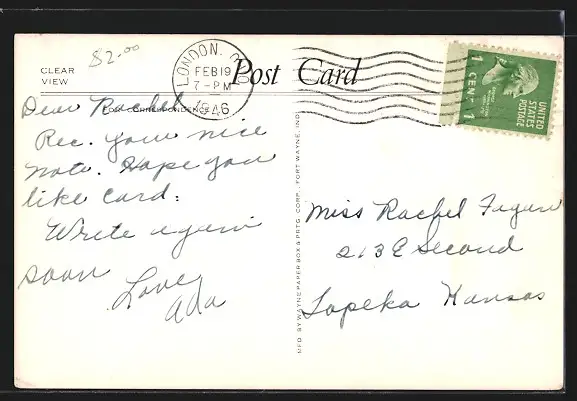 $2.00
CLEAR
VIEW
LONDON, OHIO
FEB 19
7-PM
1946
Post Card
1 CENT 1
UNITED
STATES
POSTAGE
FOR CORRESPONDENCE
Dear Rachel
Rec. your nice
note. Hope you
like card.
Write again
soon
Love
Ada
MFD. BY WAYNE PAPER BOX & PRTG. CORP., FORT WAYNE, IND.
Miss Rachel
213 E Second
Topeka Kansas